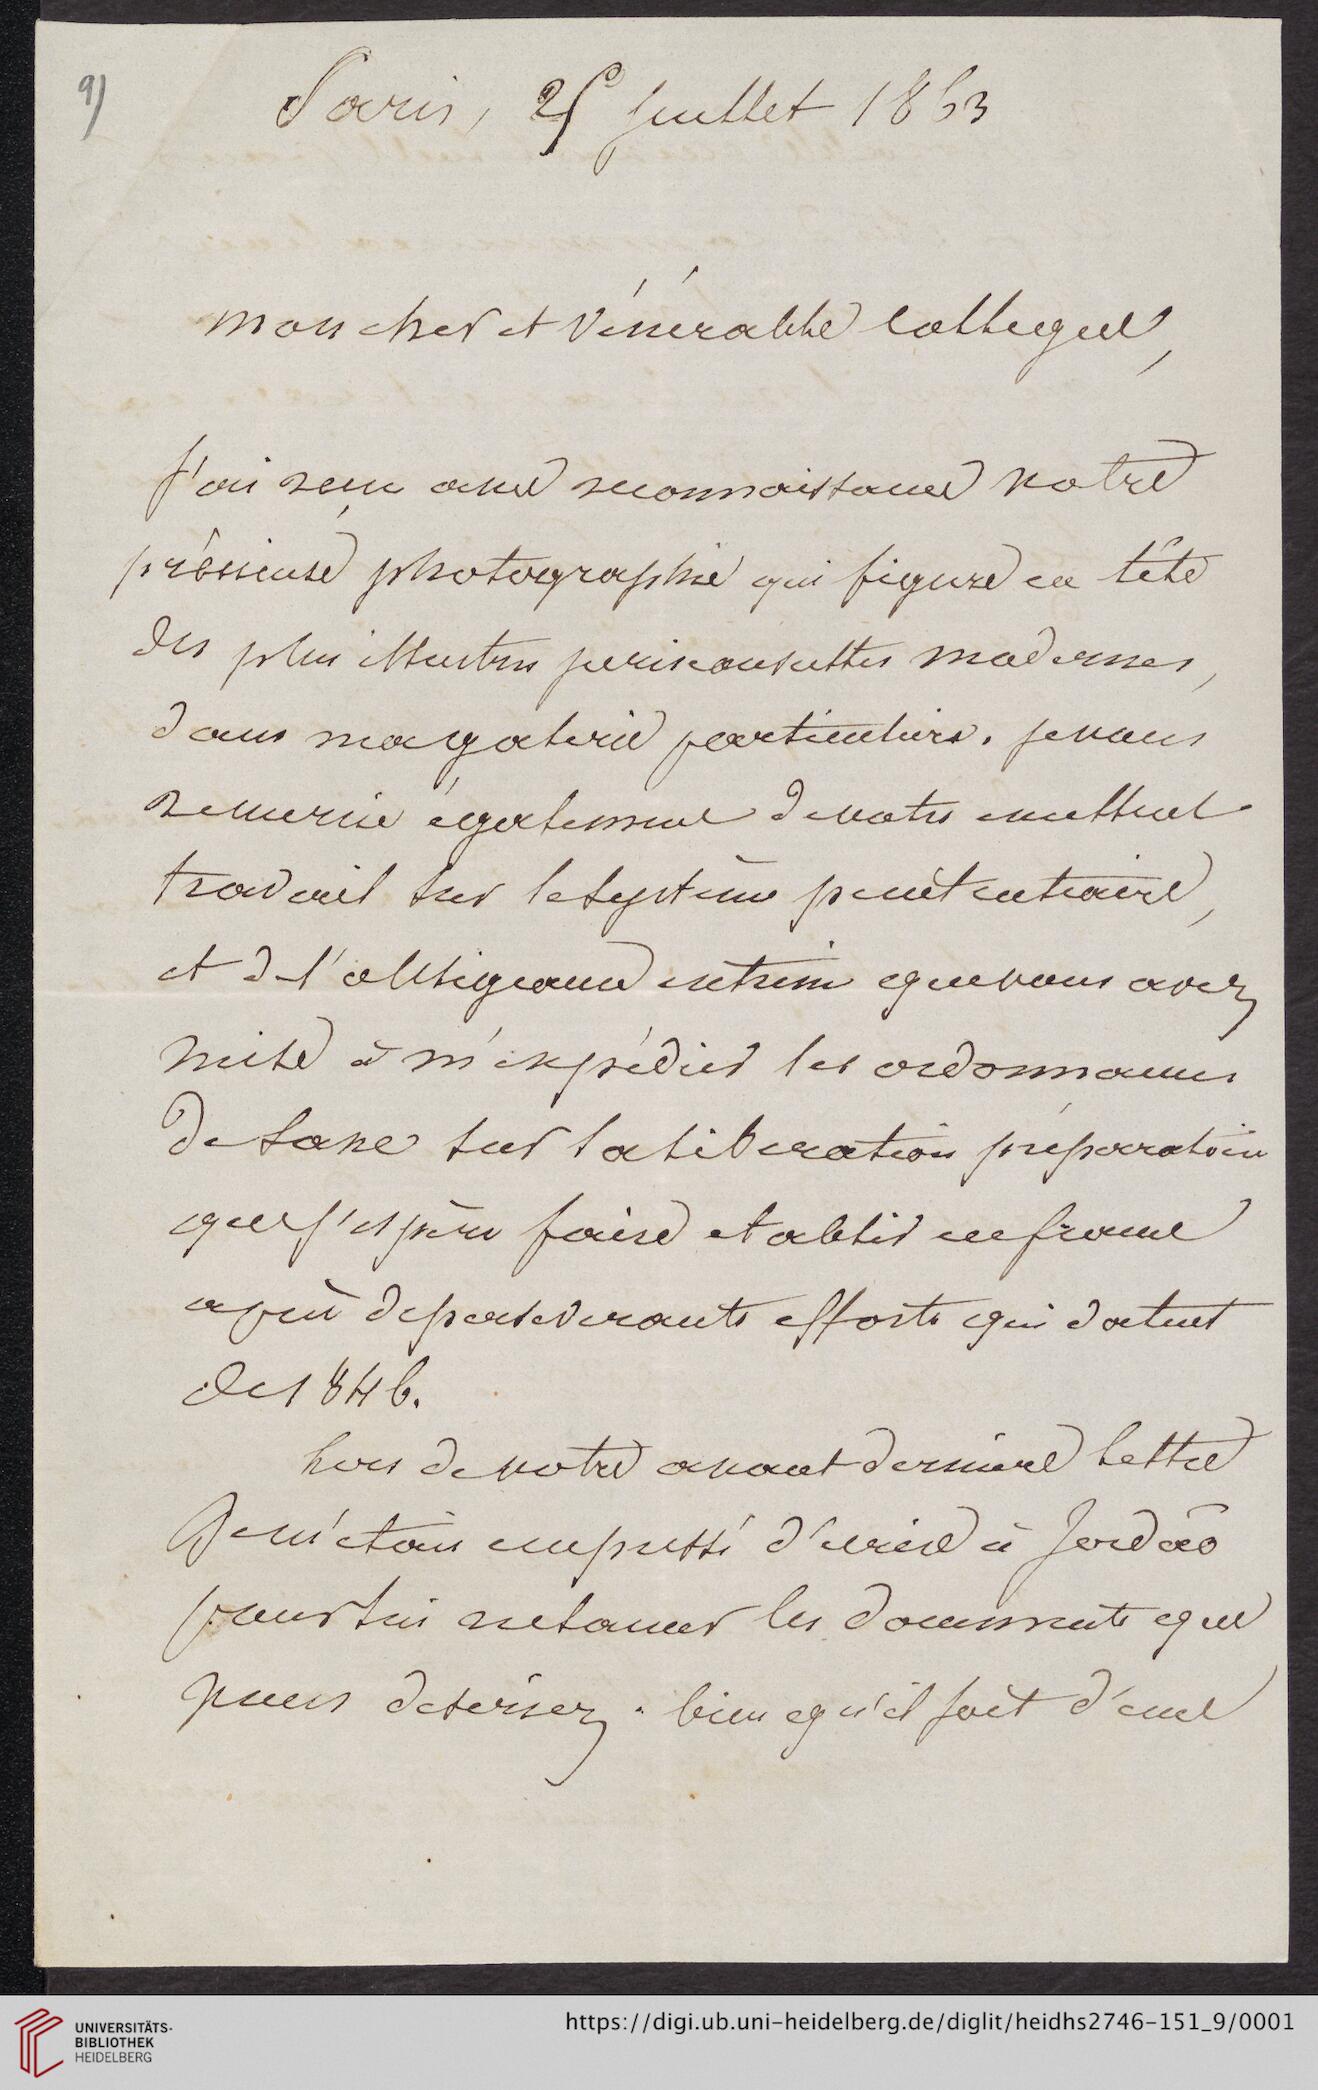 9)
Paris, 25 juillet 1863
mon cher et vénérable collegue,
j'ai reçu avec reconnaissance votre
précieuse photographie qui figure en tête
des plus illustres jurisconsultes modernes,
dans ma galerie particuliere. je vous
remercie également de votre excellent
travail sur le système penitentiaire,
et de l'obligeance extreme que vous avez
mise à m'expédier les ordonnances
de Saxe sur la liberation préparatoire
que j'espère faire etablir en france
après de perseverants efforts qui datent
de 1846.
lors de votre avant derniere lettre
je m'étais empressé d'ecrire à Jordão
pour lui reclamer les documents que
vous desiriez. bien qu'il soit d'une
UNIVERSITÄTS-
BIBLIOTHEK
HEIDELBERG
https://digi.ub.uni-heidelberg.de/diglit/heidhs2746-151_9/0001